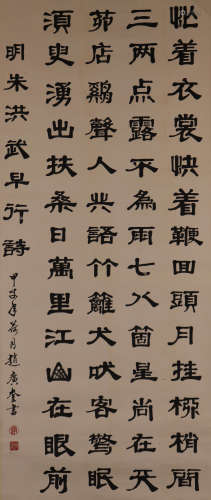 忙着衣裳快着鞭回頭月挂柳梢間
三两点露不為雨七八箇星尚在天
茆店鷄聲人共語竹籬犬吠客驚眠
須臾湧出扶桑日萬里江山在眼前
明朱洪武早行詩
甲子年荷月趙廣奎書